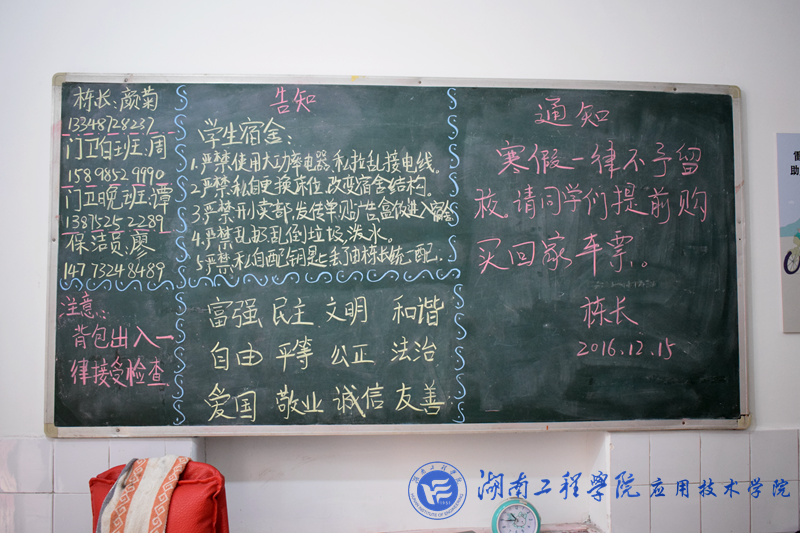 栋长:颜菊
13348728237
门卫白班:周
15898529990
门卫晚班:谭
13875252289
保洁员:廖
14773248489
注意:
背包出入一
律接受检查
告知
学生宿舍:
1.严禁使用大功率电器,私拉乱接电线。
2.严禁私自更换床位,改变宿舍结构。
3.严禁开小卖部,发传单购广告,盒饭进入宿舍
4.严禁乱扔乱倒垃圾,泼水。
5.严禁私自配钥匙,丢了由栋长统一配.
富强 民主 文明 和谐
自由 平等 公正 法治
爱国 敬业 诚信 友善
通知
寒假一律不予留
校,请同学们提前购
买回家车票。
栋长
2016.12.15
湖南工程学院应用技术学院